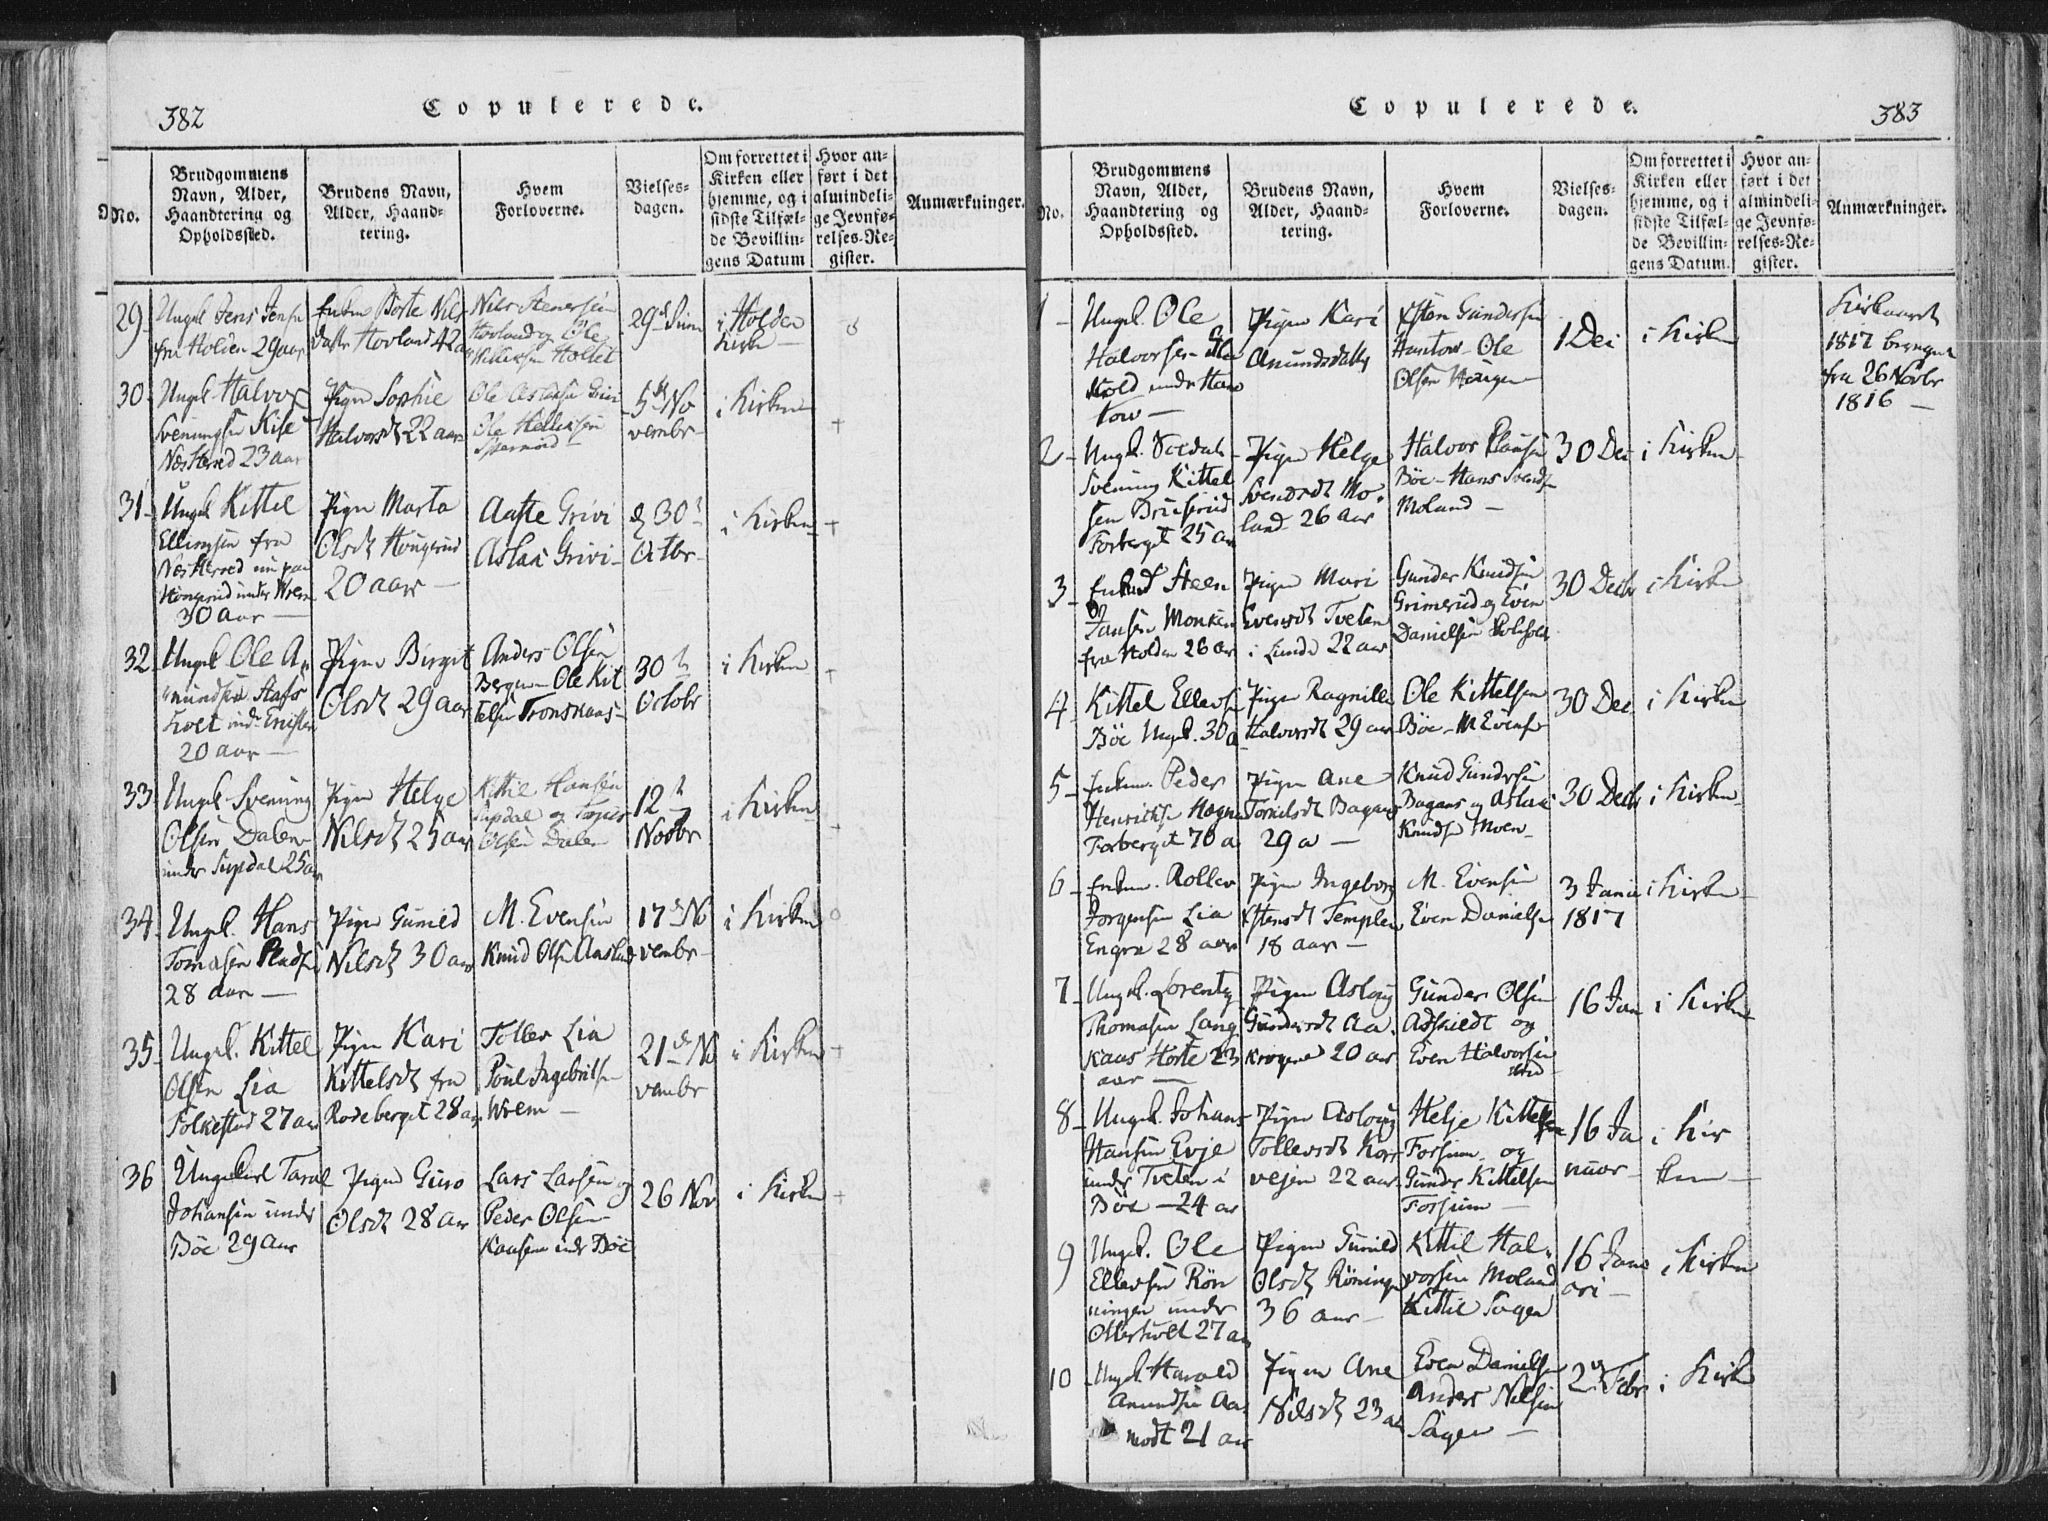 382
Copulerede.
No.
Brudgommens Navn, Alder, Haandtering og Opholdssted.
Brudens Navn, Alder, Haand-tering.
Hvem Forloverne.
Vielses-dagen.
Om forrettet i Kirken eller hjemme, og i sidste Tilfæl-de Bevillin-gens Datum
Hvor an-ført i det almindeli-ge Jevnfø-relses-Re-gister.
Anmærkninger.
29
Ungk Jens Jensen
fra Holden 29 aar
Enken Dorte Nils
datter Hovland 42 a
Nils Stenersen
Hovland og Ole
Holtet
29de Juni
i Holden
Kirke
30
Ungk Halvor
Svenungsen Kise
Næs Herred 23 aar
Pigen Sophie
Halvorsdt 22 aar
Ole Aslaksen Grivi
Ole
5te No
vembr
i Kirken
31
Ungk Kittel
Ellingsen fra
Næs Herred nu paa
Hougerud under Wrem
30 aar
Pigen Marta
Olsdt Hougerud
20 aar
Aaste Grivi
Aslak Grivi
d 30t
Octbr
i Kirken
32
Ungk Ole A-
mundsen Stafs
holt
20 aar
Pigen Birgit
Olsdt 29 aar
Anders Olsen
Bergen Ole Kit
telsen Tronskaas
30t
Octobr
i Kirken
33
Ungk Svenung
Olsen Dalen
under Supdal 25 aar
Pigen Helge
Nilsdt 25 aar
Kittil Hansen
Supdal og
Olsen Dalen
12t
Novbr
i Kirken
34
Ungk. Hans
Tomasen
28 aar
Pigen Gunild
Nilsdt 30 aar
M. Evensen
Knud Olsen Aaslund
17de No
vembr
i Kirken
35
Ungk. Kittel
Olsen Lia
Folkestad 27 aar
Pigen Kari
Kittelsdt fra
Rodeberget 28 aar
Toller Lia
Poul Ingebritsen
Wrem
21de No
vembr
i Kirken
36
Ungkarl Taral
Johansen under
Böe 29 aar
Pigen Guro
Olsdt 28 aar
Lars Larsen og
Peder Olsen
Kaasen und Böe
26 Nov
i Kirken
Copulerede.
383
No.
Brudgommens Navn, Alder, Haandtering og Opholdssted.
Brudens Navn, Alder, Haand-tering.
Hvem Forloverne.
Vielses-dagen.
Om forrettet i Kirken eller hjemme, og i sidste Tilfæl-de Bevillin-gens Datum.
Hvor an-ført i det almindeli-ge Jevnfø-relses-Re-gister.
Anmærkninger.
1
Ungk. Ole
Halvorsen
under Han
tow
Pigen Kari
Amundsdatter
Østen Gundersen
Hantow Ole
Olsen Haugen
1 Dec
i Kirken
Kirkeaaret
1817 begynt
fra 26 Novbr
1816
2
Ungk.
Svenung Kittel
sen Bruserud
Forberget 25 aar
Pigen Helge
Svendsdt Mo-
land 26 aar
Halvor Clausen
Böe Hans Svends
Moland
30 Dec
i Kirken
3
Enkem Steen
Jansen Monken
fra Holden 26 aar
Pigen Mari
Evensdt Tveten
i Lunde 22 aar
Gunder Knudsen
Grimerud og Even
Danielsen
30 Decbr
i Kirken
4
Kittel Ellevsen
Böe Ungk. 30 a
Pigen Ragnille
Halvorsdt 29 aar
Ole Kittelsen
Böe M Evensen
30 Dec
i Kirken
5
Enkem. Peder
Henriksen Hagen
Forberget 70 a
Pigen Ane
Torkilsdt Bagaas
29 a
Knud Gundersen
Bagaas og Aslak
Knudsen Moen
30 Decb
i Kirken
6
Enkem. Rollev
Jorgensen Lia
Engra 28 aar
Pigen Ingeborg
Østensdt Templen
18 aar
M. Evensen
Even Danielsen
3 Janu
1817
i Kirken
7
Ungk. Lorentz
Thomasen Lang
kaas Horte 23
aar
Pigen Aslaug
Gundersdt Aa-
krogene 20 aar
Gunder Olsen
og
Even Halvorsen
16 Jan
i Kirken
8
Ungk. Johans
Hansen Evje
under Tveten i
Böe 24 ar
Pigen Aslaug
Tollevsdt Kors
vejen 22 aar
Helje Kittelsen
Forsium og
Gunder Kittelsen
Forsium
16 Ja
nuar
i Kir
ken
9
Ungk. Ole
Ellevsen Rön
ningen under
Oterholt 27 aar
Pigen Gunild
Olsdt Röningen
36 aar
Kittil Hal-
vorsen Moland
Kittil Sagen
16 Janu
ari
i Kirken
10
Ungk. Harald
Amundsen Aa-
modt 21 aar
Pigen Ane
Nilsdt 23 aar
Even Danielsen
Anders Nilsen
Sagen
2 Febr
i Kirken